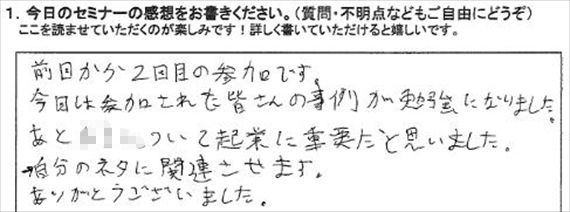 1. 今日のセミナーの感想をお書きください。(質問・不明点などもご自由にどうぞ)
ここを読ませていただくのが楽しみです!詳しく書いていただけると嬉しいです。
前回から2回目の参加です。
今日は参加された皆さんの事例が勉強になりました。
あと ついて起業に重要だと思いました。
→自分のネタに関連させます。
ありがとうございました。